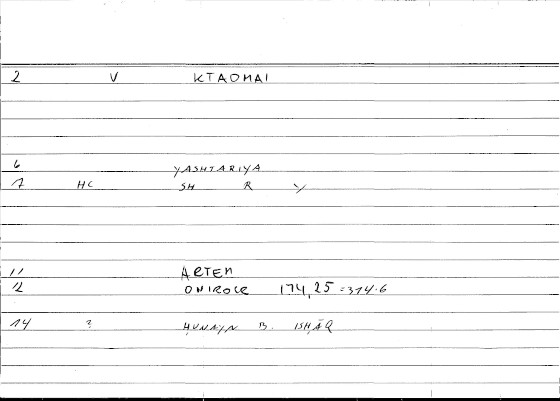 2 V KTAOMAI
6 YASHTARIYA
7 HC SH R Y
11 ARTEM
12 ONIROCR 174,25 = 314.6
14 ? ḤUNAYN B. ISḤĀQ